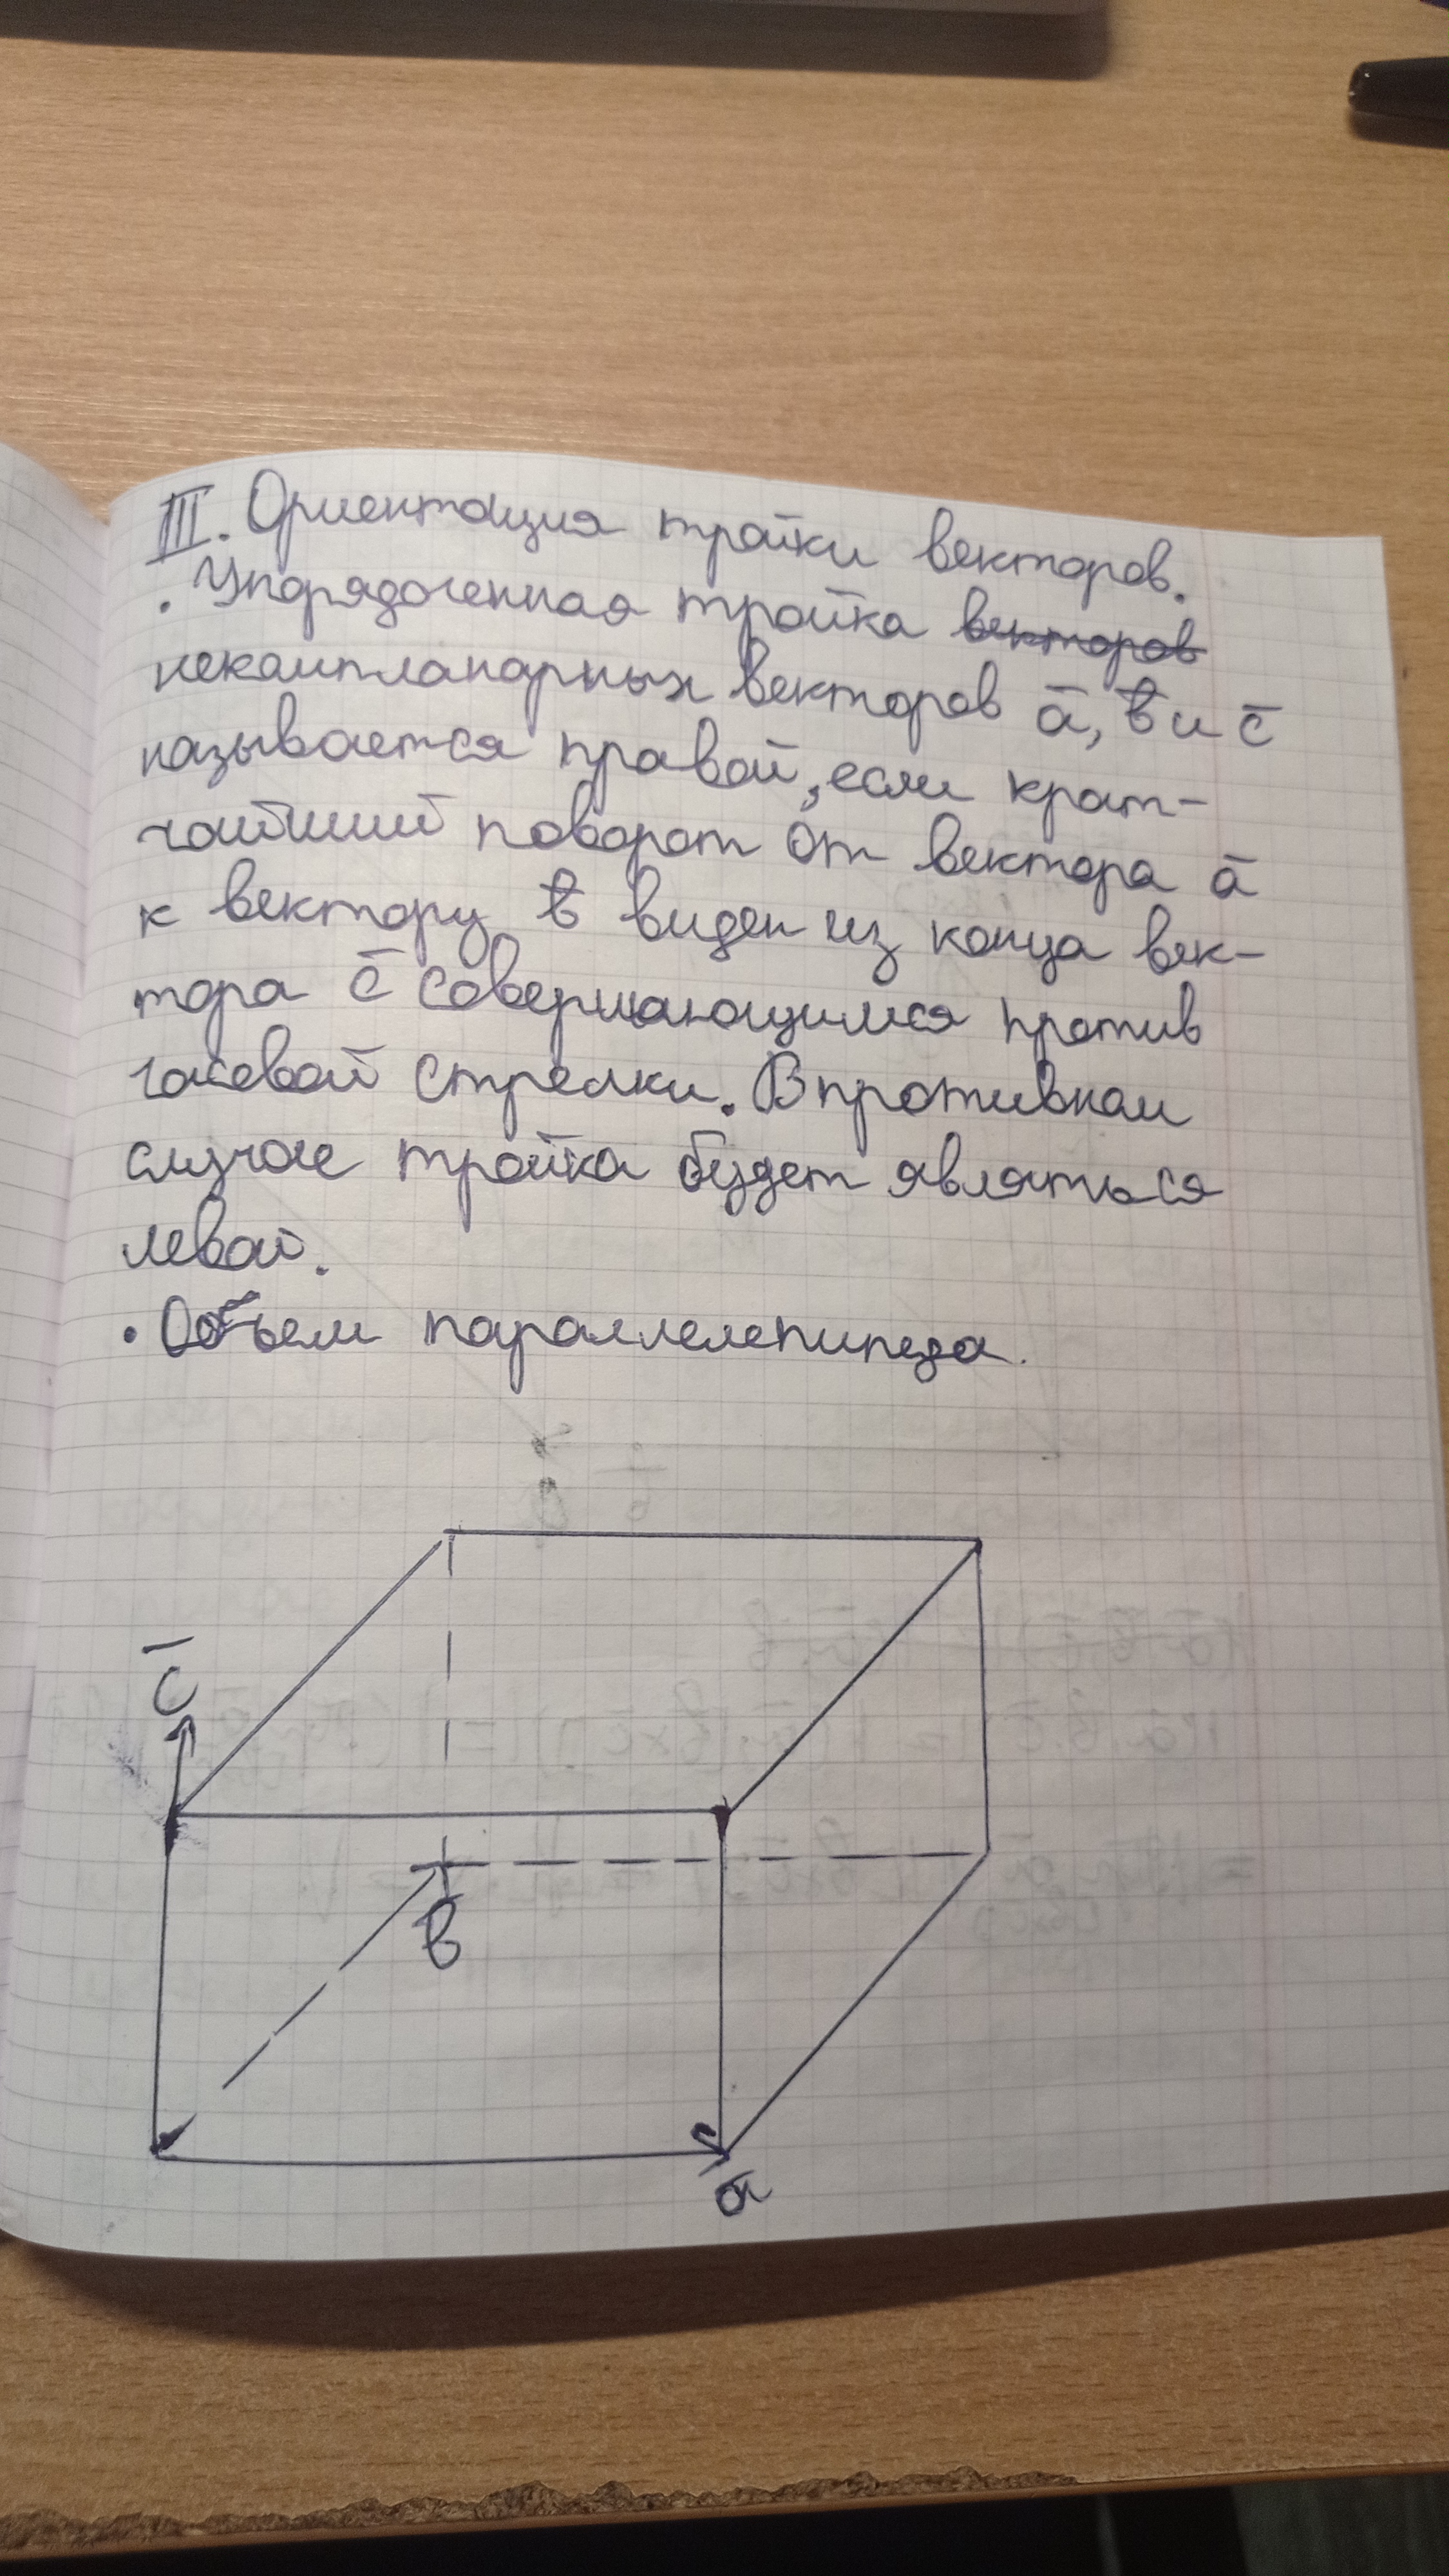 III. Ориентация тройки векторов.
• Упорядоченная тройка векторов
некомпланарных векторов a̅, b̅ и c̅
называется правой, если крат-
чайший поворот от вектора a̅
к вектору b̅ виден из конца век-
тора c̅ совершающимся против
часовой стрелки. В противном
случае тройка будет являться
левой.
• Объем параллелепипеда.
c̅
b̅
a̅